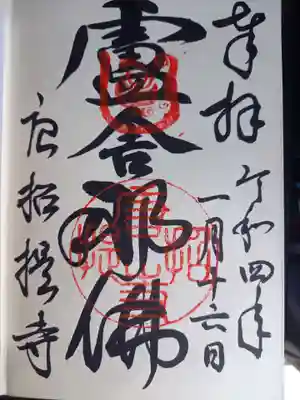 奉拝
令和四年
一月十六日
盧舎那佛
唐招提寺